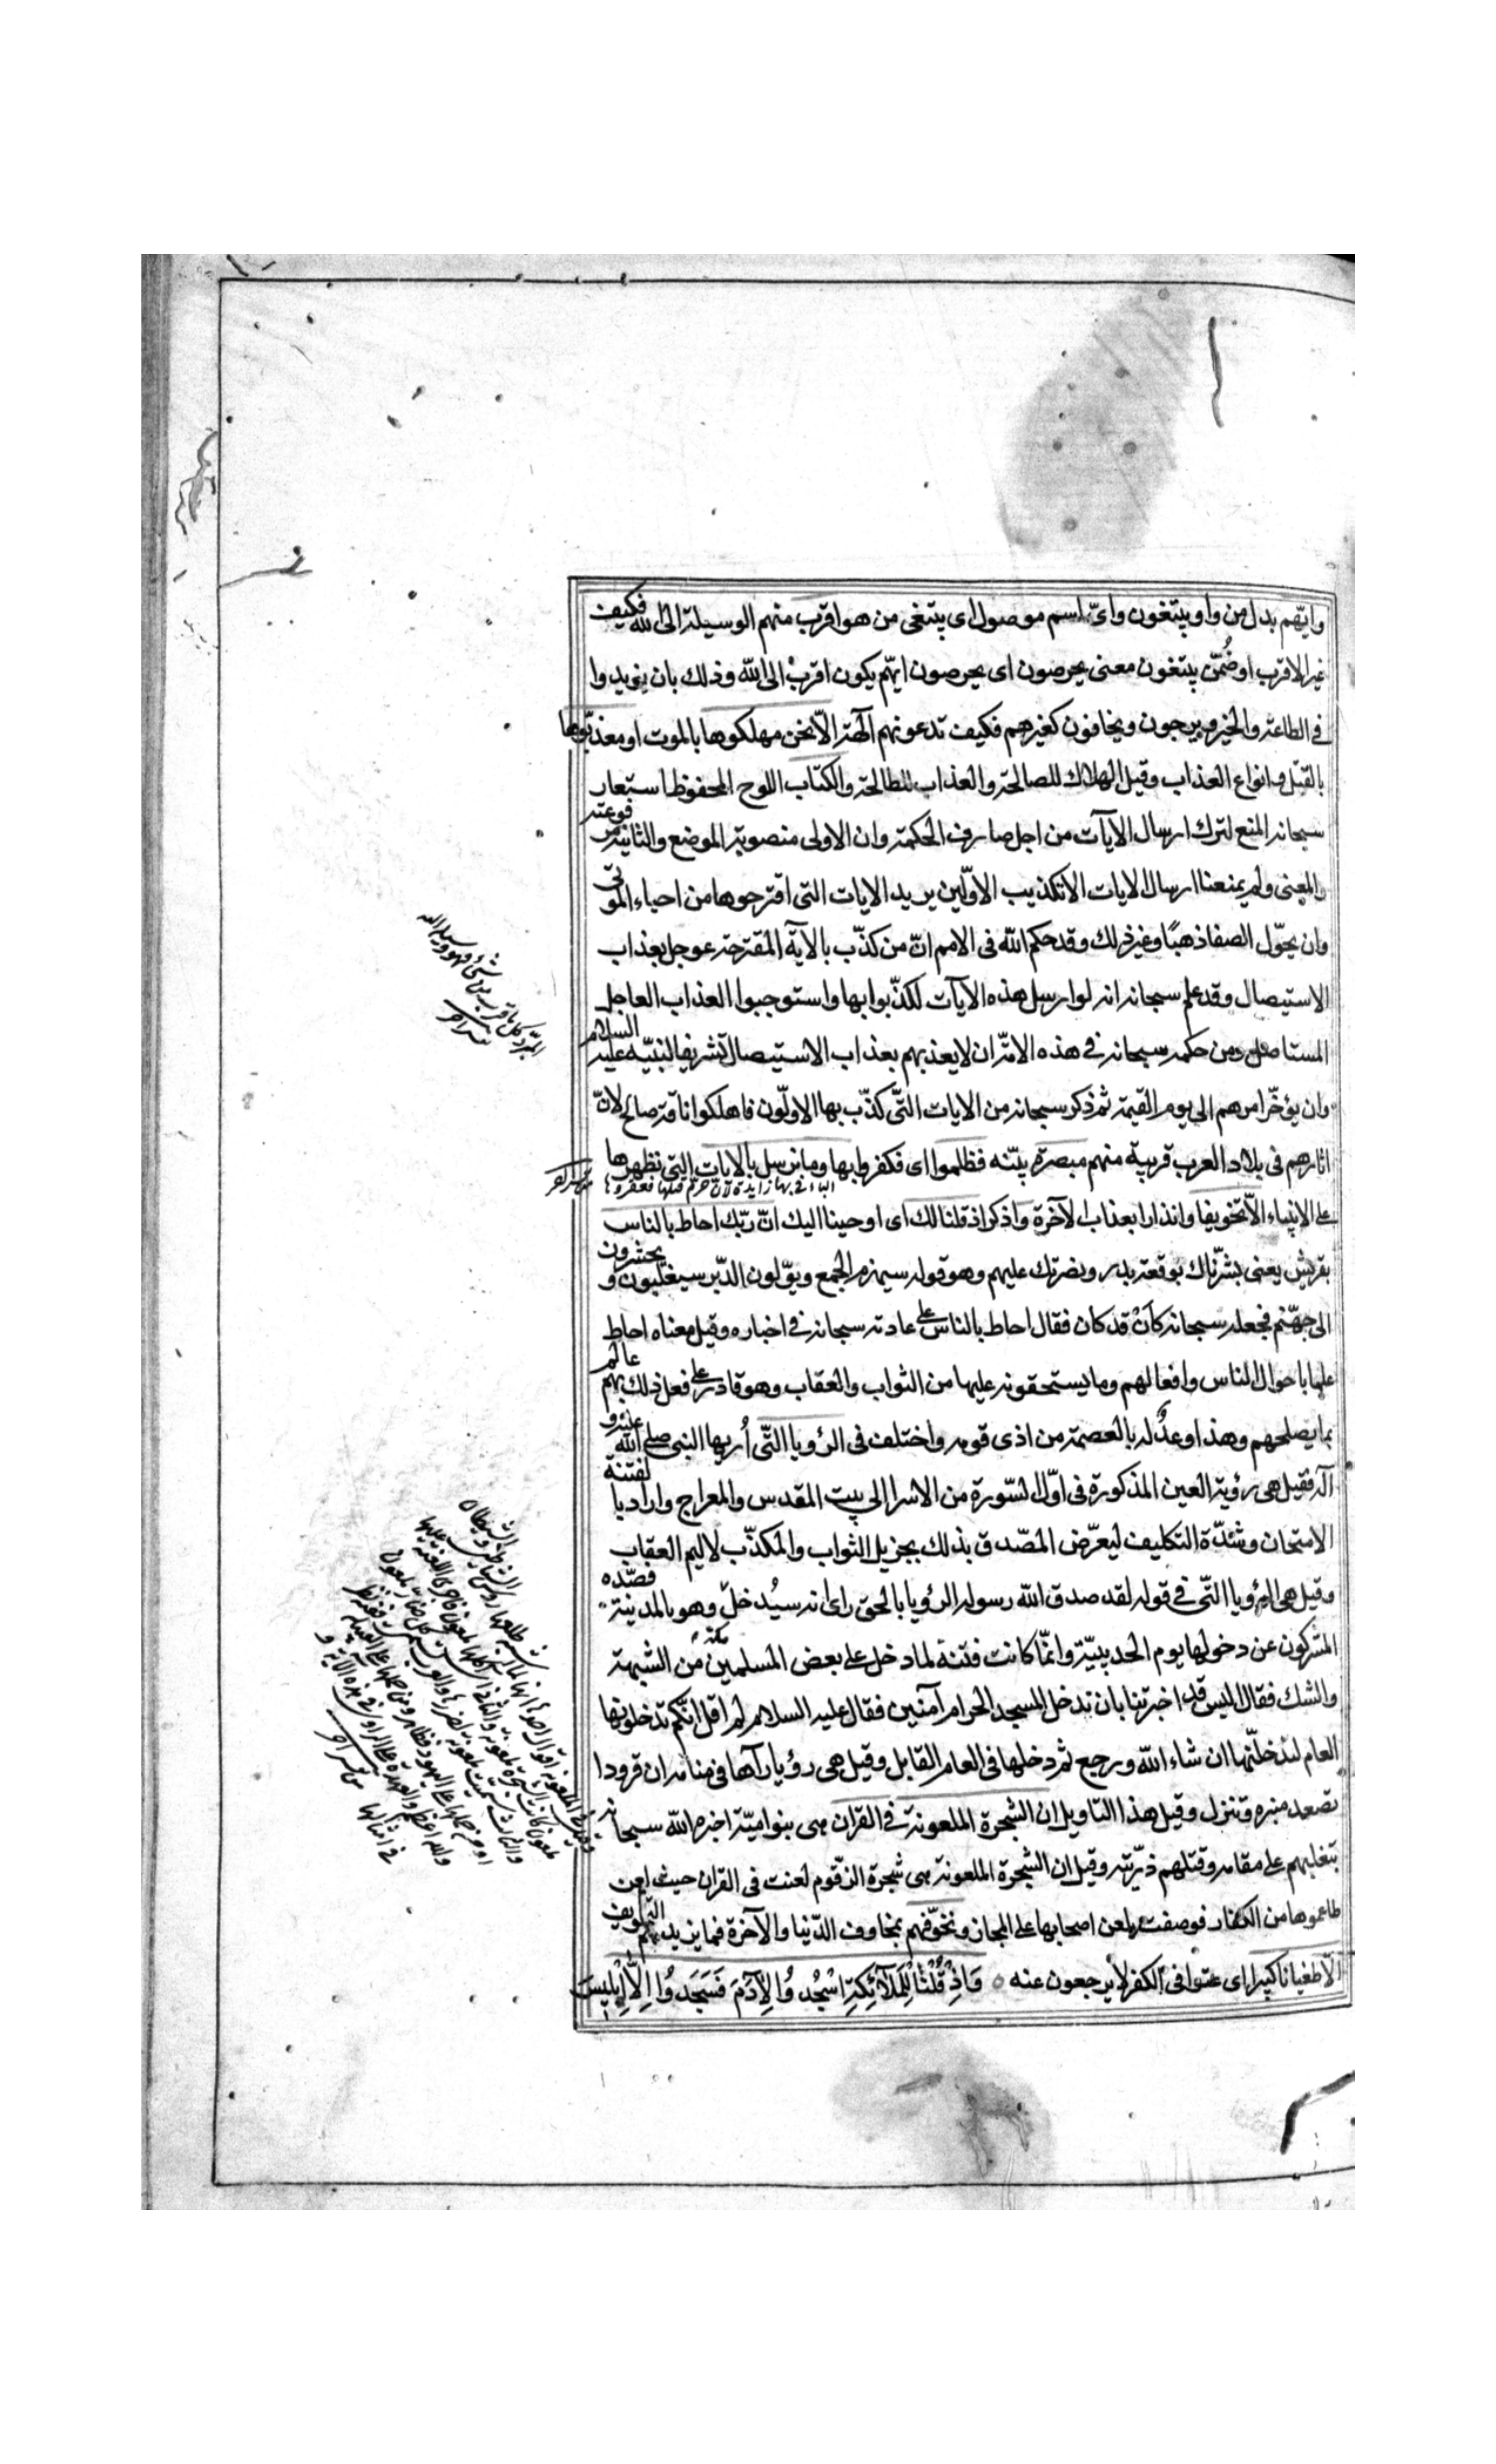 وايّهم بدل من واو يبتغون واىّ اسم موصول اى يبتغى من هو اقرب منهم الوسيلة الى الله فكيف
غير الاقرب او ضُمّن يبتغون معنى يحرصون اى يحرصون ايّهم يكون اقرب الى الله وذلك بان يزيدوا
فى الطاعة والخير ويرجون ويخافون كغيرهم فكيف تدعونهم آلهة الّا نحن مهلكوها بالموت او معذّبوها
بالقتل وانواع العذاب وقيل الهلاك للصالحة والعذاب للطالحة والكتاب اللوح المحفوظ استعار
سبحانه المنع لترك ارسال الايآت من اجل صارف الحكمة وان الاولى منصوبة الموضع والثانية مرفوعته
والمعنى ولم يمنعنا ارسال الايات الا تكذيب الاوّلين يريد الايات التى اقترحوها من احياء الموتى
وان يحوّل الصفا ذهبًا وغير ذلك وقد حكم الله فى الامم انّ من كذّب بالآية المقترحة عوجل بعذاب
الاستيصال وقد علم سبحانه انه لو ارسل هذه الايآت لكذّبوا بها واستوجبوا العذاب العاجل
المستاصل ومن حكمه سبحانه فى هذه الامّة ان لا يعذبهم بعذاب الاستيصال تشريفا لنبيّه عليه السلام
وان يؤخّر امرهم الى يوم القيمة ثم ذكر سبحانه من الايات التّى كذّب بها الاولّون فاهلكوا ناقة صالح لانّ
اثارهم فى بلاد العرب قريبة منهم مبصرة بيّنه فظلموا اى فكفروا بها وما نرسل بالايات التى نظهرها
الباء فى بها زايدة لان
على الانبياء الّا تخويفا وانذارا بعذاب الآخرة واذكر اذ قلنا لك اى اوحينا اليك انّ ربّك احاط بالناس
بقريش يعنى بشّرناك بوقعة بدر ونصرتك عليهم وهو قوله سيهزم الجمع ويوّلون الدّبر سيغلبون ويحشرون
الى جهّنم فجعله سبحانه كأنْ قد كان فقال احاط بالناس على عادته سبحانه فى اخباره وقيل معناه احاط
علما باحوال الناس وافعالهم وما يستحقونه عليها من الثواب والعقاب وهو قادر على فعل ذلك بهم عالم
بما يصلحهم وهذا وعدٌ له بالعصمة من اذى قومه واختلف فى الرؤيا التّى اُريها النبى صلى الله عليه و
آله فقيل هى رؤية العين المذكورة فى اوّل السّورة من الاسرا الى بيت المقدس والمعراج واراد بالفتنة
الامتحان وشدّة التكليف ليعرّض المصّدق بذلك بجزيل الثواب والمكذّب لاليم العقاب
وقيل هى الرؤيا التّى فى قوله لقد صدق الله رسوله الرؤيا بالحق راى انه سيُدخل وهو بالمدينة فصّده
المشركون عن دخولها يوم الحديبيّة وانّما كانت فتنة لما دخل على بعض المسلمين من الشبهة
والشك فقال اليس قد اخبرتنا بان ندخل المسجد الحرام آمنين فقال عليه السلام لم اقل انّكم تدخلونها
العام لتدخلنّها ان شاء الله ورجع ثم دخلها فى العام القابل وقيل هى رؤيا رآها فى منامه ان قرودا
تصعد منبره وتنزل وقيل هذا التاويل ان الشجرة الملعونة فى القران هى بنو اميّة اخبره الله سبحانه
بتغلبهم على مقامه وقتلهم ذرّيته وقيل ان الشجرة الملعونة هى شجرة الزقّوم لعنت فى القران حيث لعن
طاعموها من الكفار فوصفت بلعن اصحابها على المجاز ونخوّفهم بمخاوف الدّنيا والآخرة فما يزيدهم التخويف
الّا طغيانا كبيرا اى عتوا فى الكفر لا يرجعون عنه ٥ وَاِذْ قُلْنٰا لِلْمَلآئِكَةِ اسْجُدُوا لِآدَمَ فَسَجَدُوا اِلّا اِبْليسَ